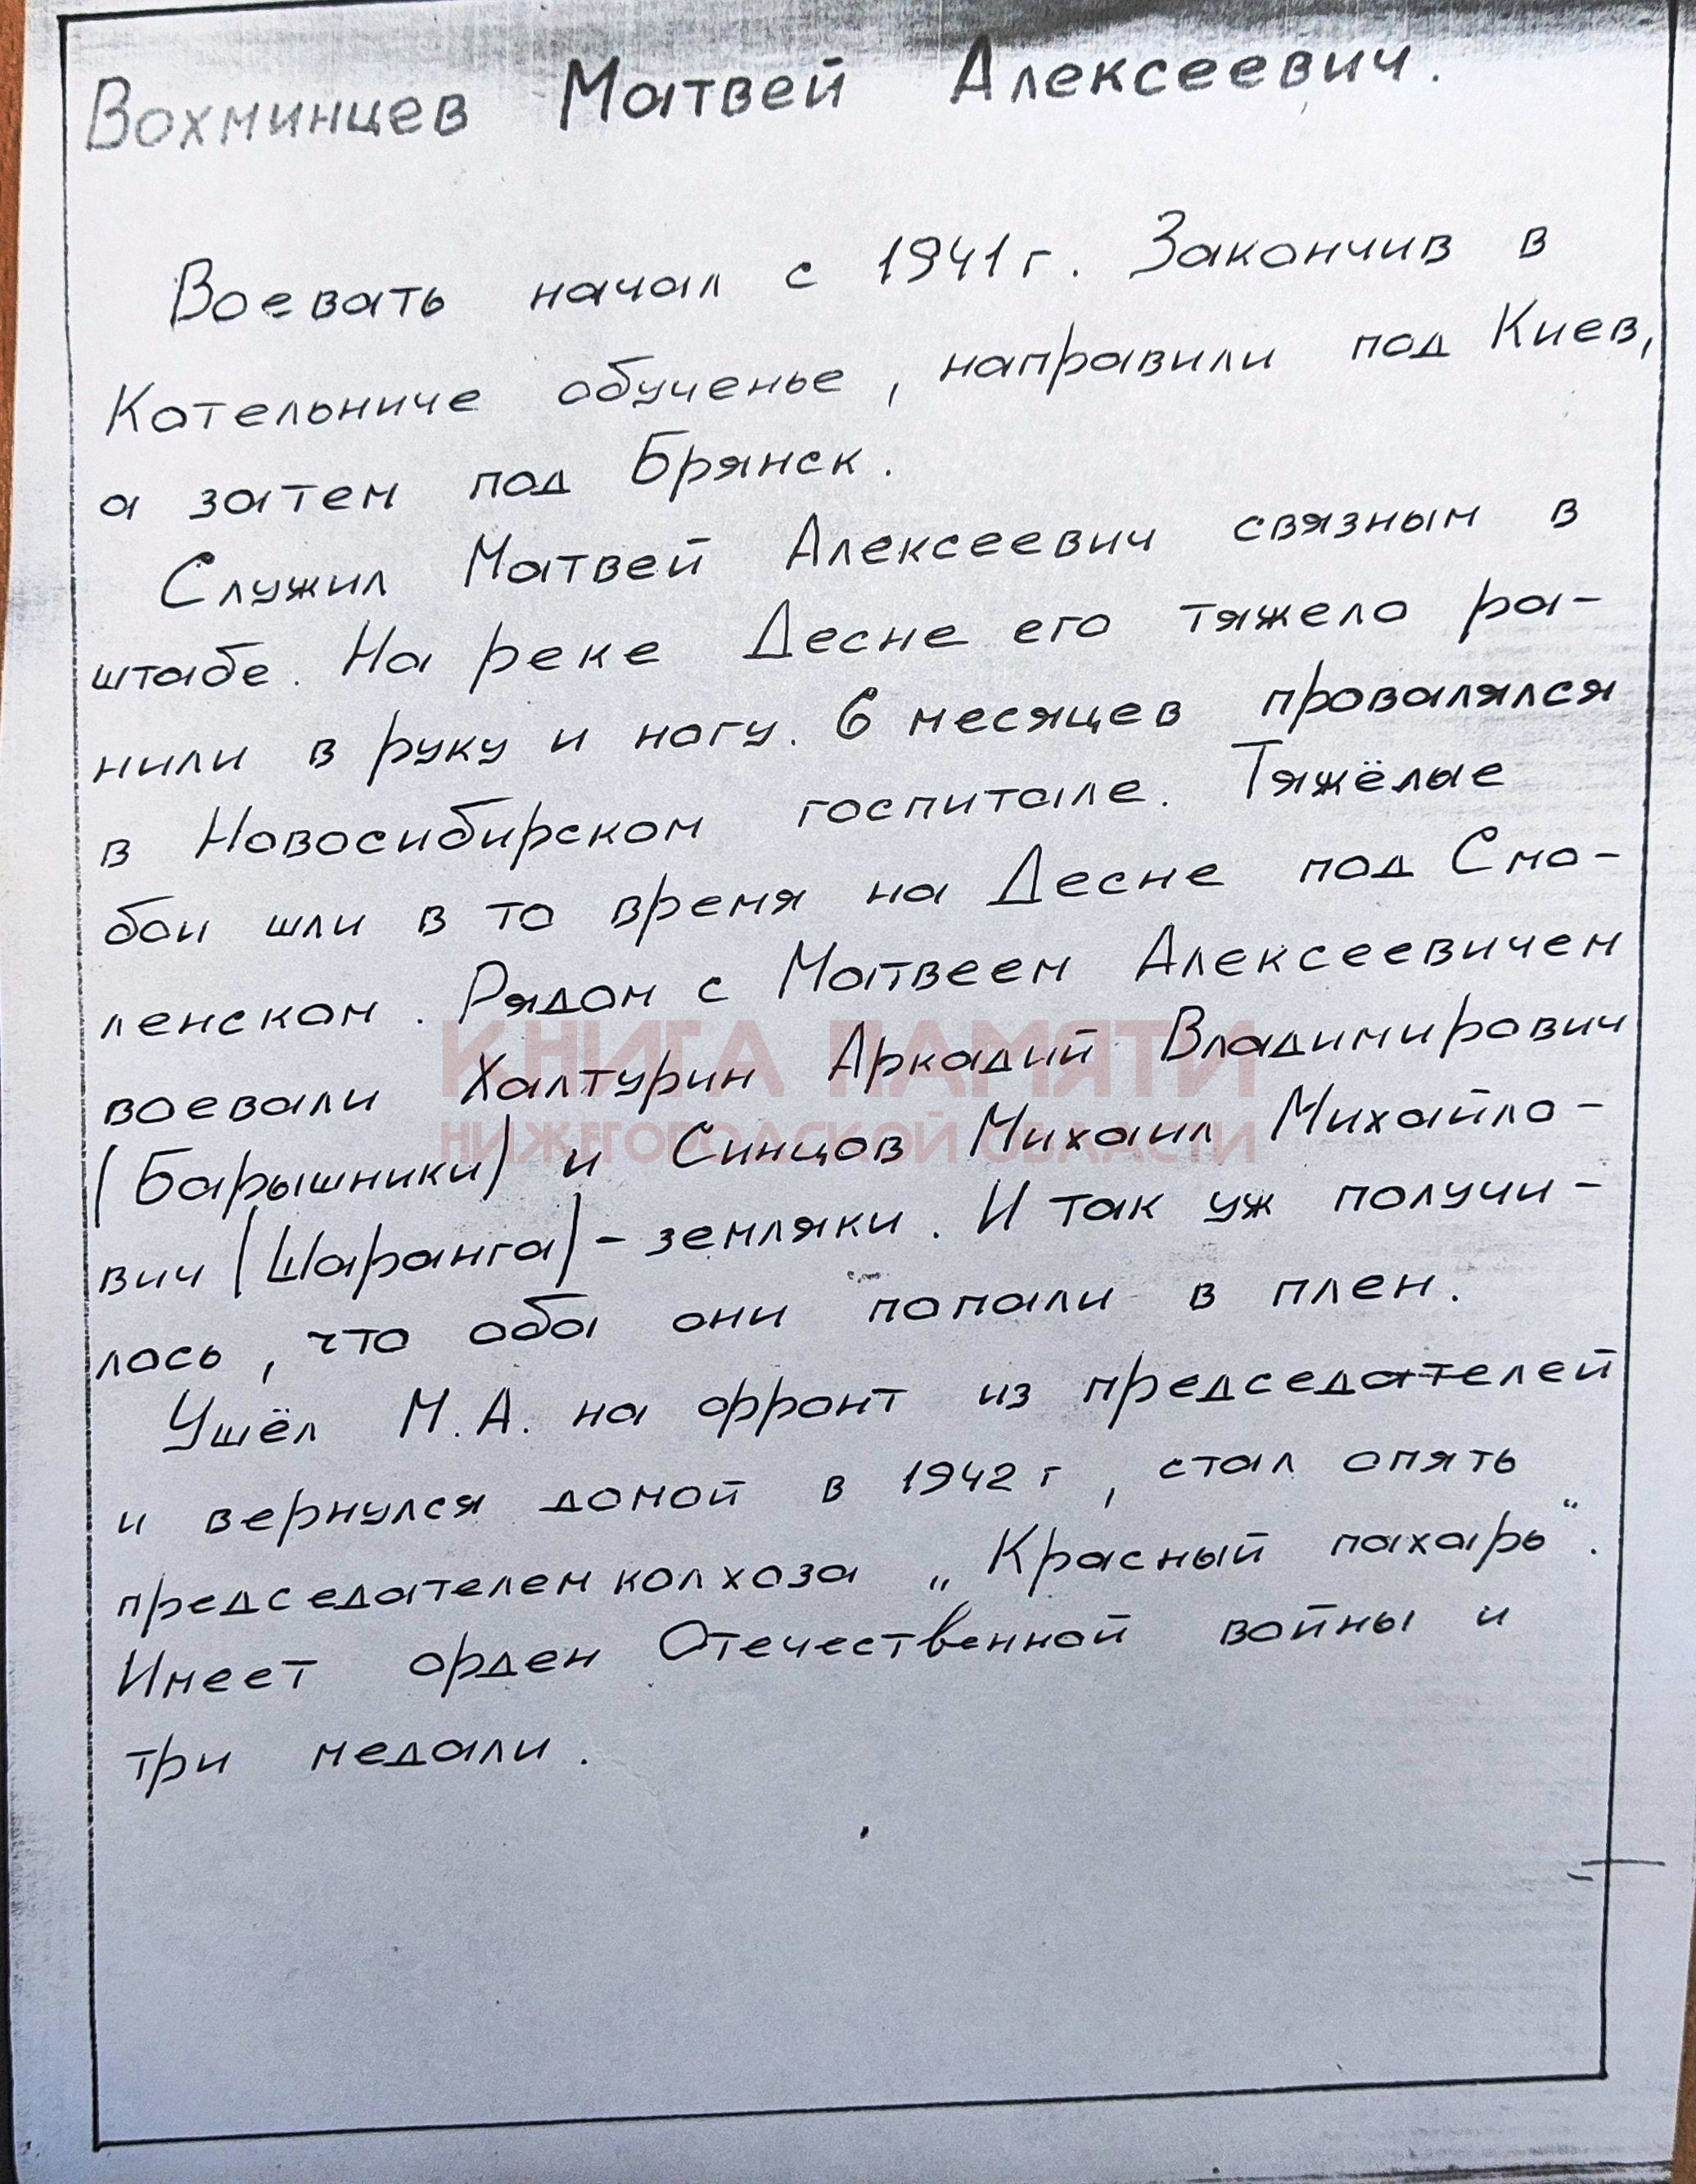 Вохминцев Матвей Алексеевич.
Воевать начал с 1941 г. Закончив в
Котельниче обученье, направили под Киев,
а затем под Брянск.
Служил Матвей Алексеевич связным в
штабе. На реке Десне его тяжело ра-
нили в руку и ногу. 6 месяцев провалялся
в Новосибирском госпитале. Тяжёлые
бои шли в то время на Десне под Смо-
ленском. Рядом с Матвеем Алексеевичем
КНИГА ПАМЯТИ
воевали Халтурин Аркадий Владимирович
НИЖЕГОРОДСКОЙ ОБЛАСТИ
(Барышники) и Синцов Михаил Михайло-
вич (Шаранга) - земляки. И так уж получи-
лось, что оба они попали в плен.
Ушёл М.А. на фронт из председателей
и вернулся домой в 1942 г, стал опять
председателем колхоза „Красный пахарь“.
Имеет орден Отечественной войны и
три медали.